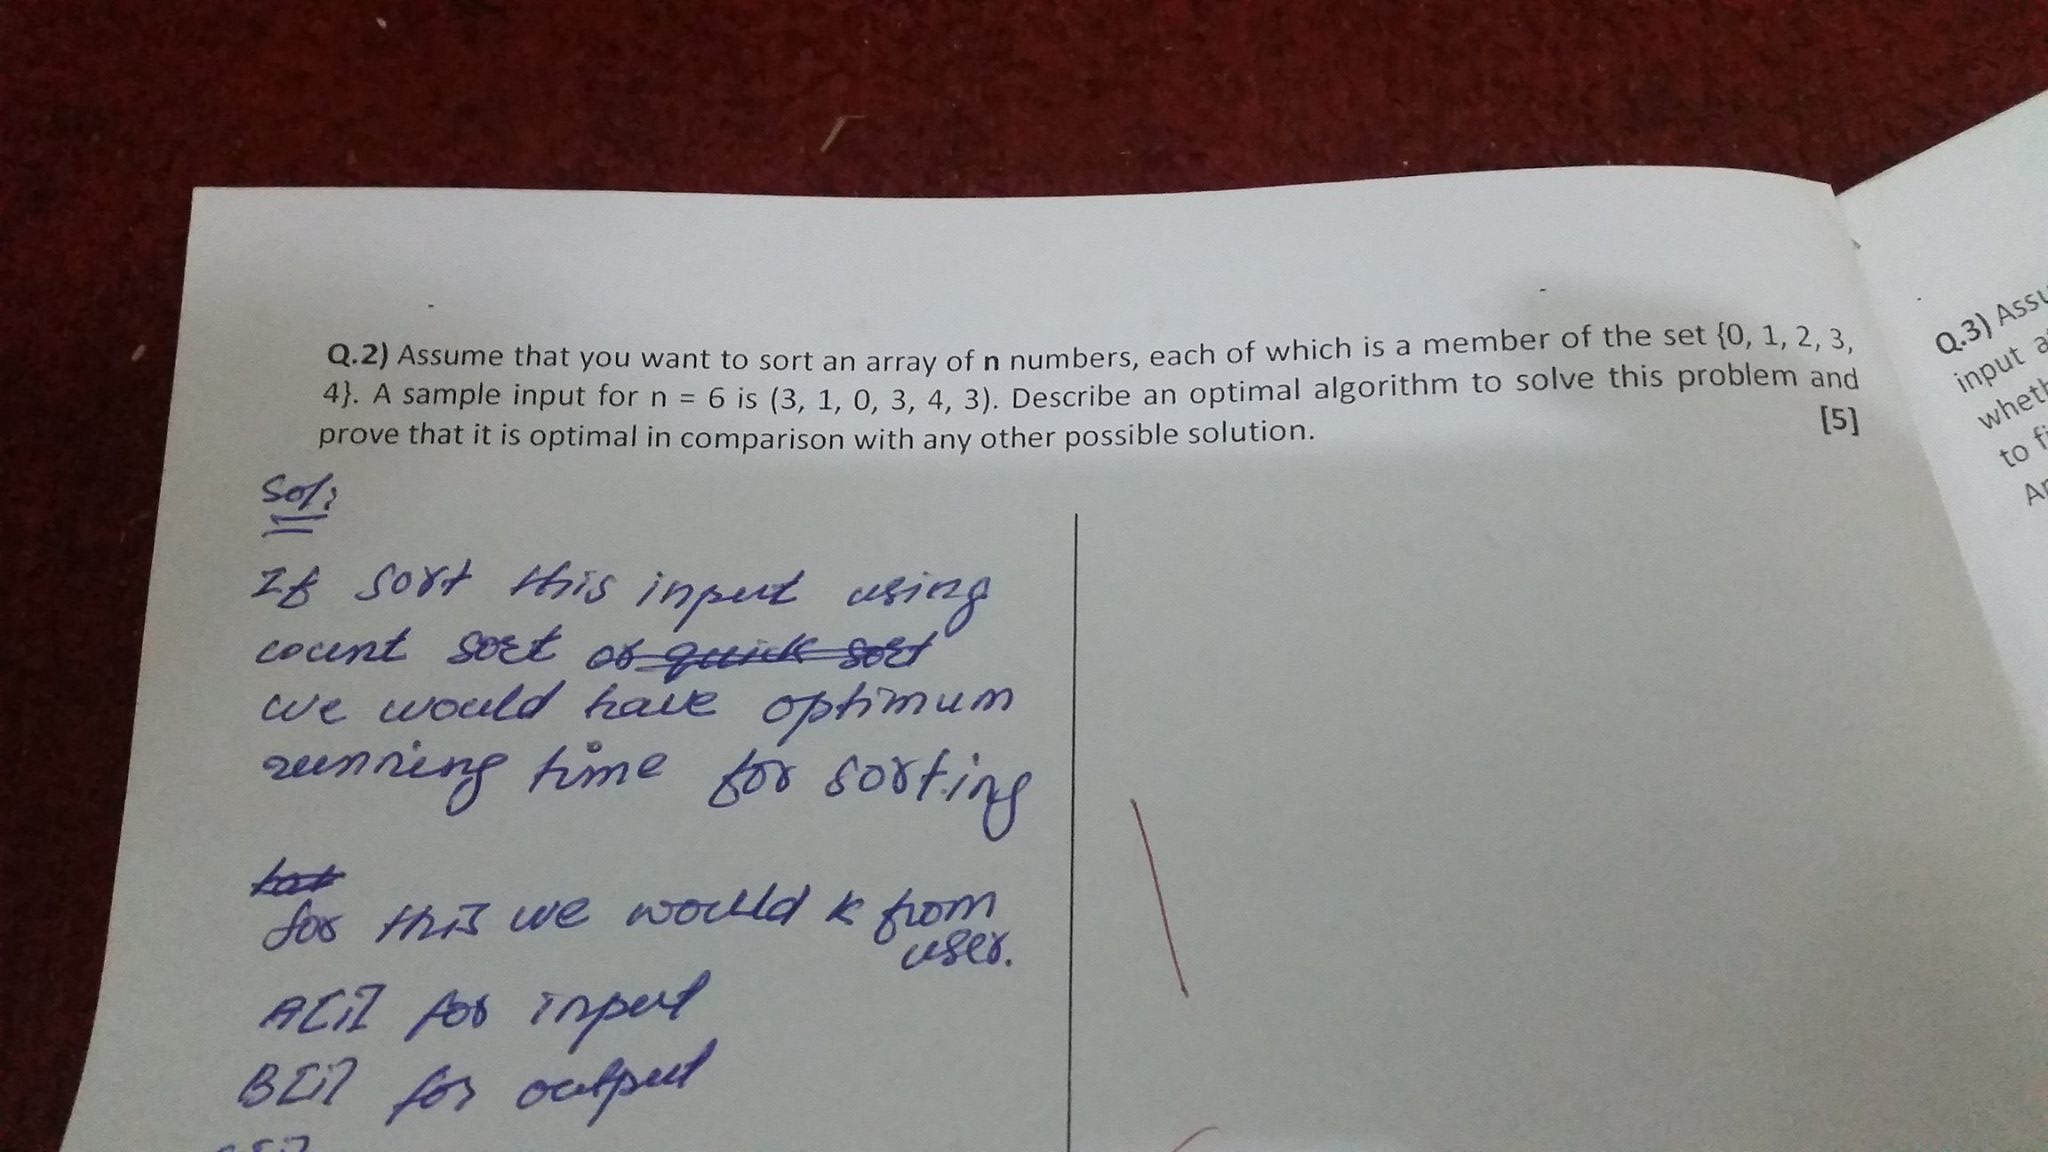 Q.2) Assume that you want to sort an array of n numbers, each of which is a member of the set {0, 1, 2, 3,
4}. A sample input for n = 6 is (3, 1, 0, 3, 4, 3). Describe an optimal algorithm to solve this problem and
prove that it is optimal in comparison with any other possible solution.
[5]
Sol:
If sort this input using
count sort or quick sort
we would have optimum
running time for sorting
for this we would k from
user.
A[i] for input
B[i] for output
Q.3) Assu
input a
whet
to fi